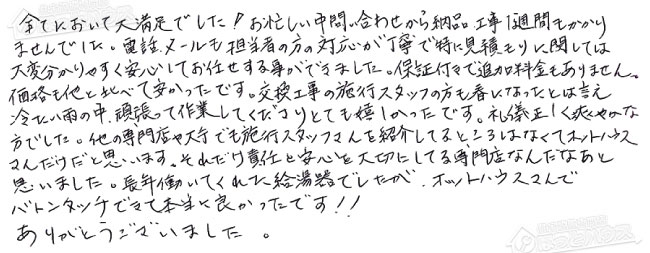 全てにおいて大満足でした!お忙しい中問い合わせから納品、工事1週間もかかり
ませんでした。電話、メールも担当者の方の対応が丁寧で特に見積もりに関しては
大変分かりやすく安心してお任せする事ができました。保証付きで追加料金もありません。
価格も他と比べて安かったです。交換工事の施行スタッフの方も春になったとは言え
冷たい雨の中、頑張って作業してくださりとても嬉しかったです。礼儀正しく爽やかな
方でした。他の専門店や大手でも施行スタッフさんを紹介してるところはなくてホットハウス
さんだけだと思います。それだけ責任と安心を大切にしてる専門店なんだなあと
思いました。長年働いてくれた給湯器でしたが、ホットハウスさんで
バトンタッチできて本当に良かったです!!
ありがとうございました。